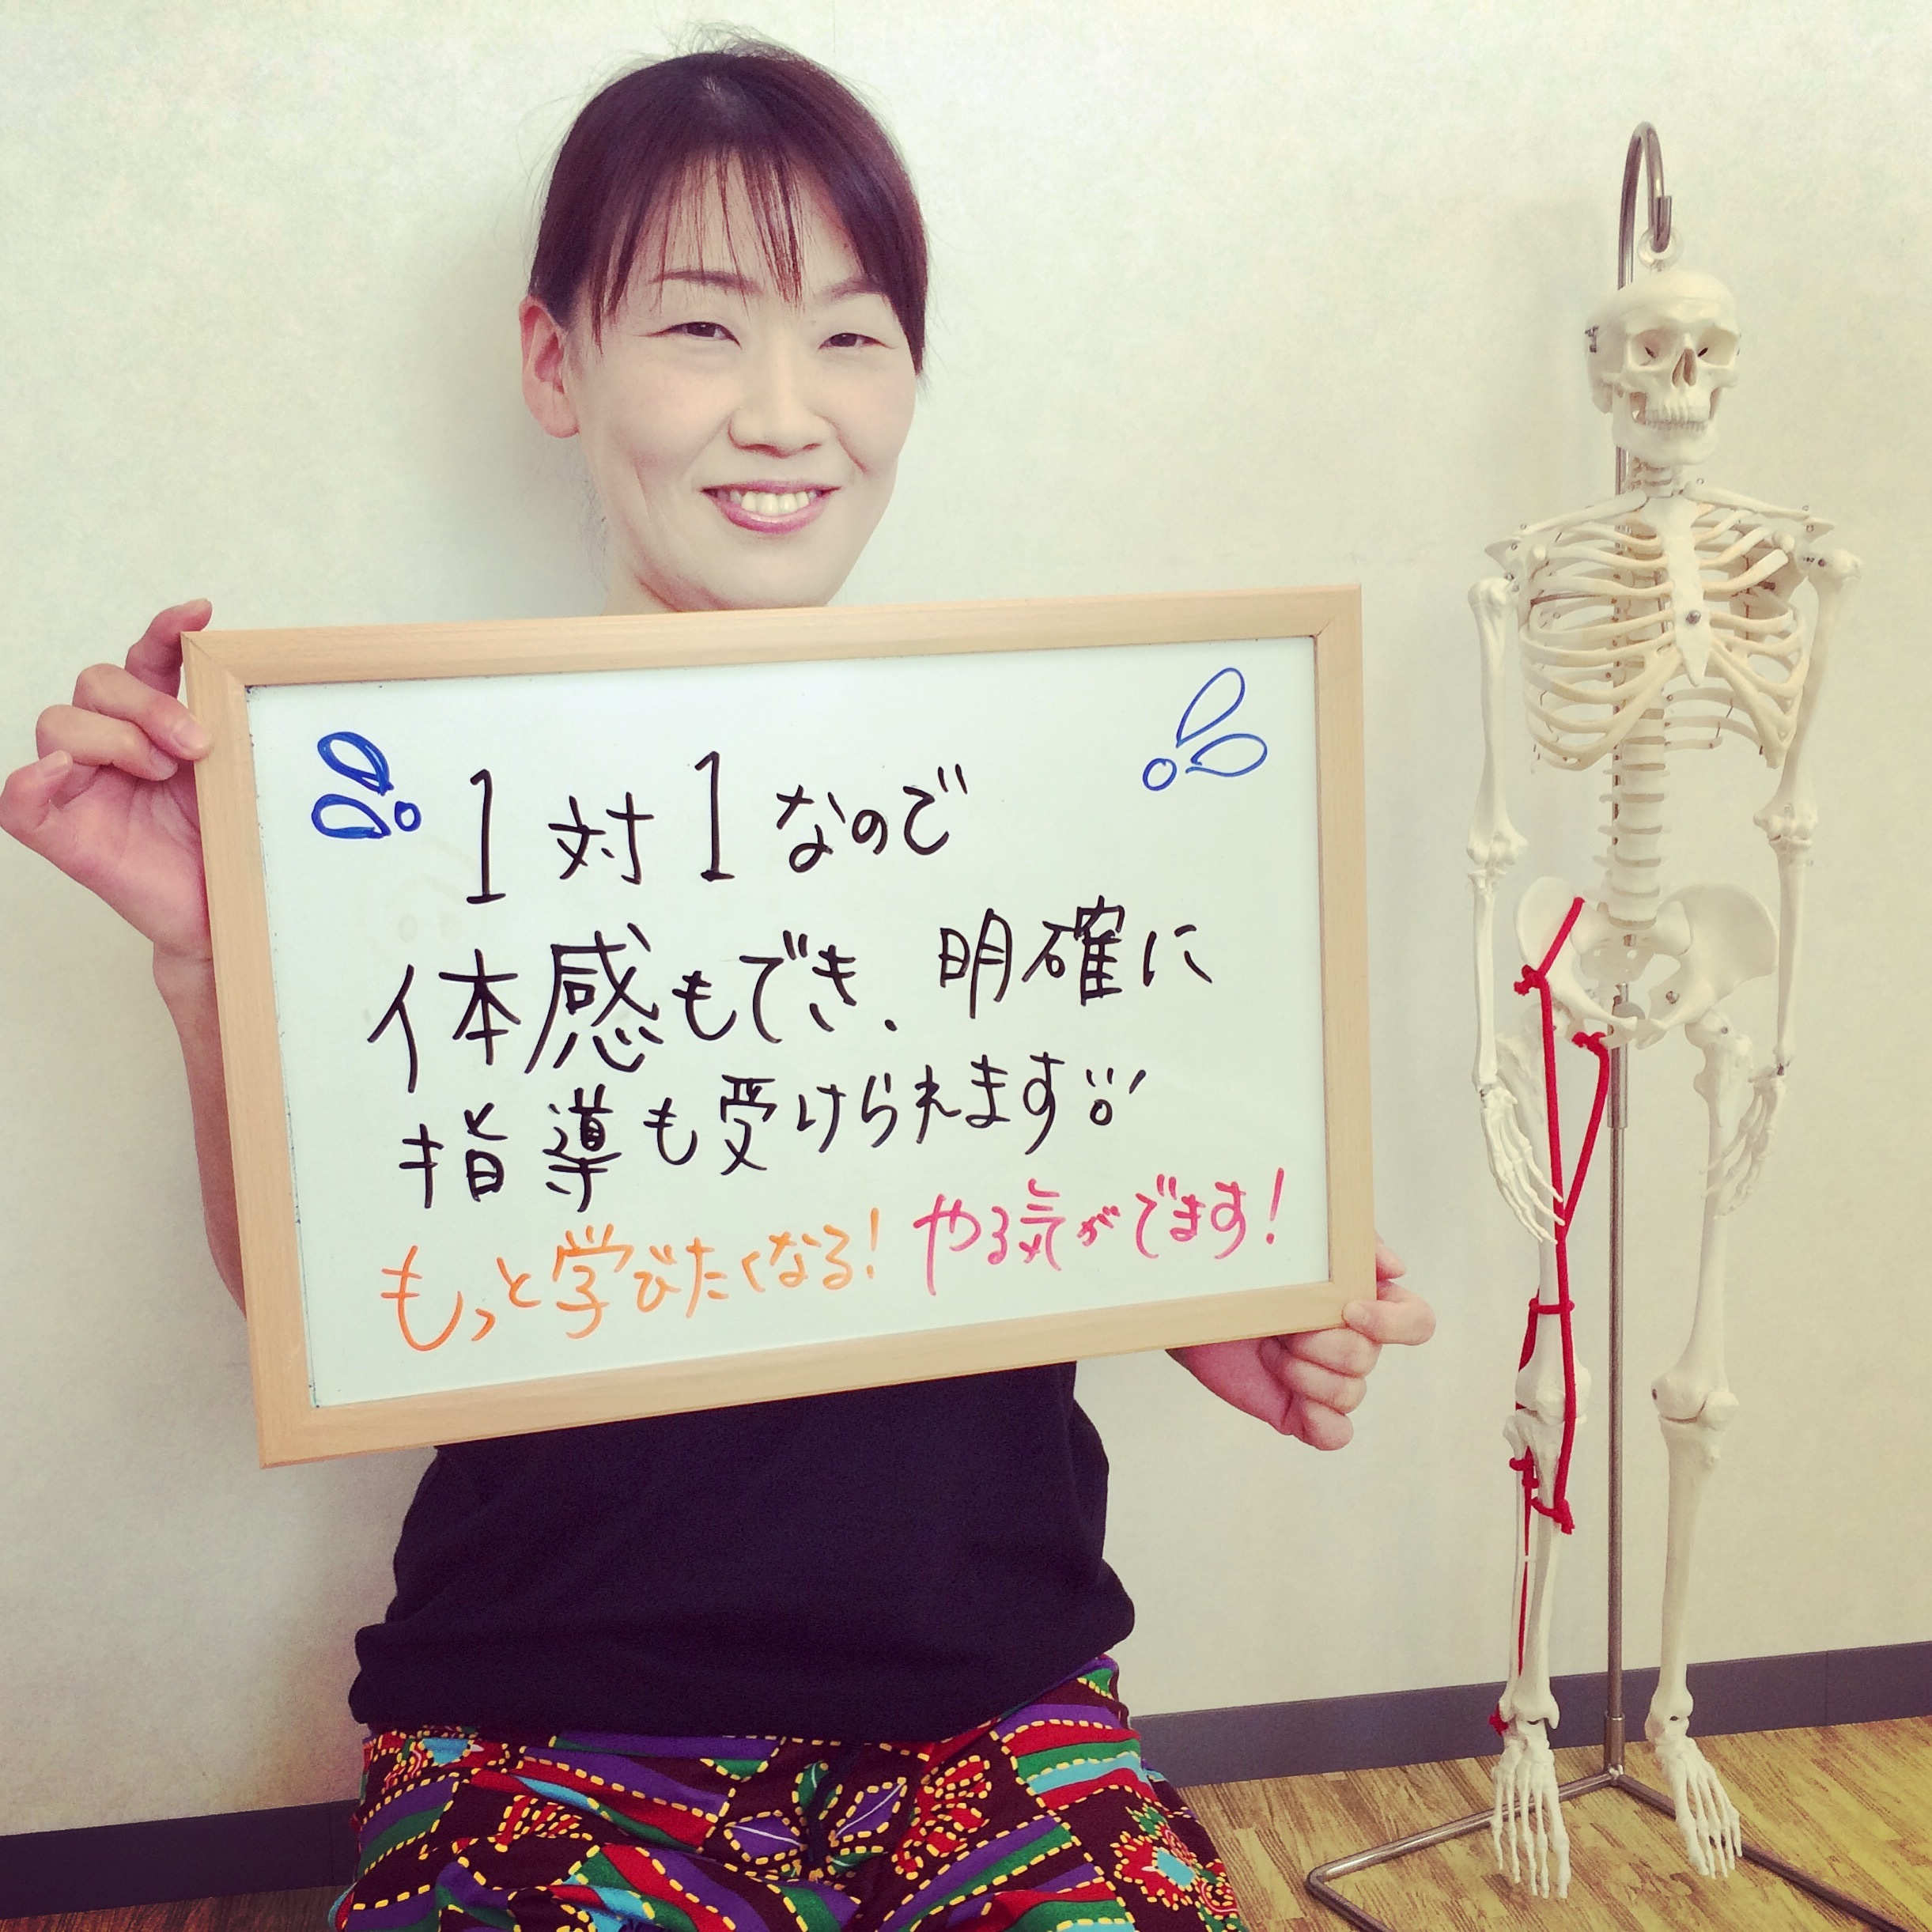 1対1なので
体感もでき、明確に
指導も受けられます
もっと学びたくなる! やる気がでます!